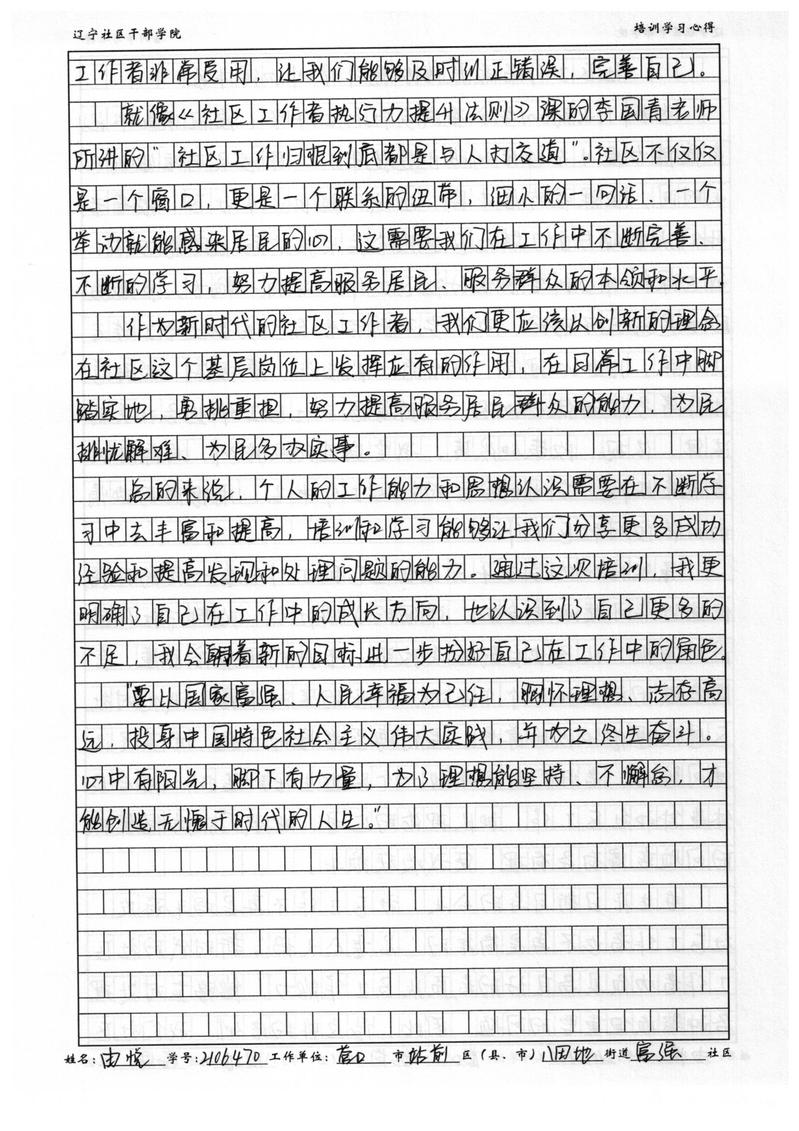 辽宁社区干部学院 培训学习心得
工作者非常受用，让我们能够及时纠正错误，完善自己。
就像《社区工作者执行力提升法则》课的李国青老师
所讲的“社区工作归根到底都是与人打交道”。社区不仅仅
是一个窗口，更是一个联系的纽带，细小的一句话、一个
举动就能感染居民的心，这需要我们在工作中不断完善、
不断的学习，努力提高服务居民、服务群众的本领和水平.
作为新时代的社区工作者，我们更应该以创新的理念
在社区这个基层岗位上发挥应有的作用，在日常工作中脚
踏实地，勇挑重担，努力提高服务居民群众的能力，为民
排忧解难、为民多办实事。
总的来说，个人的工作能力和思想认识需要在不断学
习中去丰富和提高，培训和学习能够让我们分享更多成功
经验和提高发现和处理问题的能力。通过这次培训，我更
明确了自己在工作中的成长方向，也认识到了自己更多的
不足，我会朝着新的目标进一步扮好自己在工作中的角色.
“要以国家富强、人民幸福为己任，胸怀理想、志存高
远，投身中国特色社会主义伟大实践，并为之终生奋斗。
心中有阳光，脚下有力量，为了理想能坚持、不懈怠，才
能创造无愧于时代的人生。”
姓名：由悦 学号：2106470 工作单位：营口 市 站前 区（县、市）八田地 街道 富强 社区